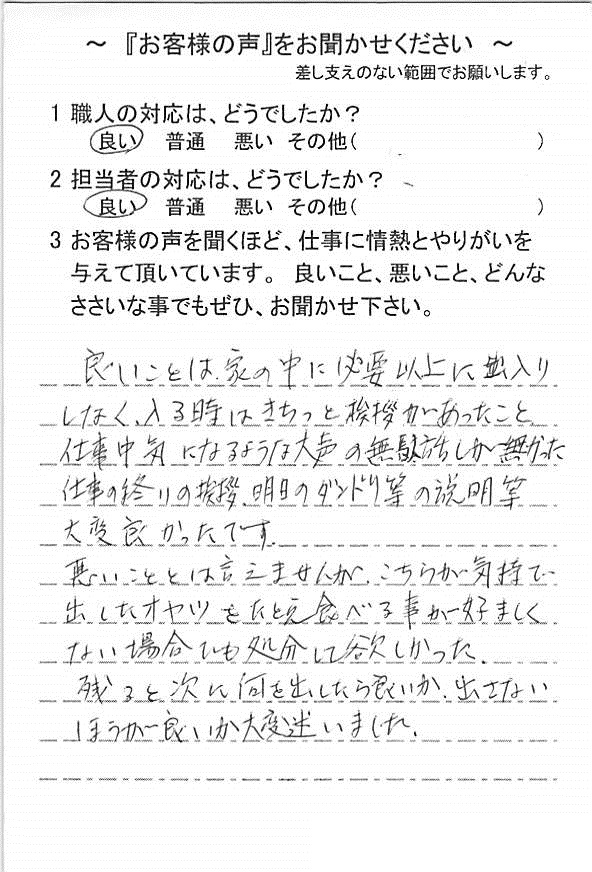 ～ 『お客様の声』をお聞かせください ～
差し支えのない範囲でお願いします。
1 職人の対応は、どうでしたか？
良い 普通 悪い その他( )
2 担当者の対応は、どうでしたか？
良い 普通 悪い その他( )
3 お客様の声を聞くほど、仕事に情熱とやりがいを
与えて頂いています。 良いこと、悪いこと、どんな
ささいな事でもぜひ、お聞かせ下さい。
良いことは、家の中に必要以上に出入り
しなく、入る時はきちっと挨拶があったこと
仕事中気になるような大声の無駄話しが無かった
仕事の終りの挨拶、明日のダンドリ等の説明等
大変良かったです。
悪いこととは言えませんが、こちらが気持で
出したオヤツをたとえ食べる事が好ましく
ない場合でも処分して欲しかった。
残ると次に何を出したら良いか、出さない
ほうが良いか大変迷いました。